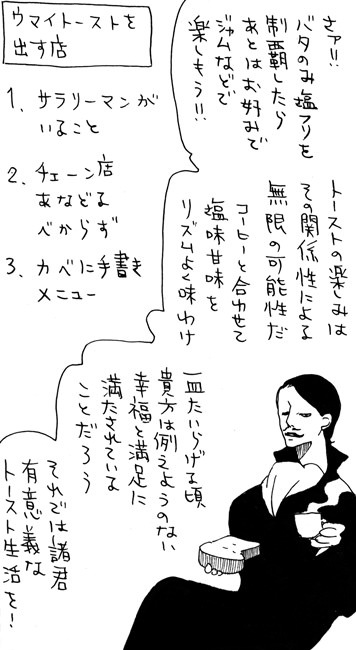 ウマイトーストを
出す店
1、サラリーマンが
いること
2、チェーン店
あなどる
べからず
3、カベに手書き
メニュー
さァ!!
バタのみ塩フリを
制覇したら
あとはお好みで
ジャムなどで
楽しもう!!
トーストの楽しみは
その関係性による
無限の可能性だ
コーヒーと合わせて
塩味甘味を
リズムよく味わけ
一皿たいらげる頃
貴方は例えようのない
幸福と満足に
満たされている
ことだろう
それでは諸君
有意義な
トースト生活を!